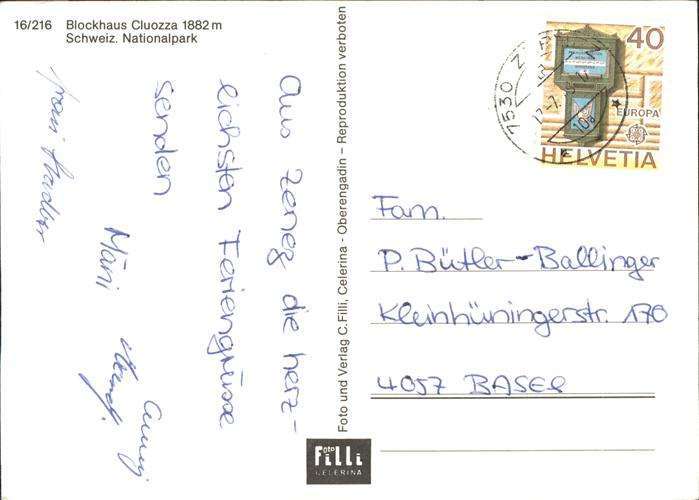 16/216 Blockhaus Cluozza 1882 m
Schweiz. Nationalpark
Aus Zeneg die herz-
lichsten Feriengrüsse
senden
Märi
Foto und Verlag C. Filli, Celerina - Oberengadin - Reproduktion verboten
Foto
Filli
CELERINA
40
EUROPA
HELVETIA
7530 Z
Fam.
P. Bütler-Ballinger
Kleinhüningerstr. 170
4057 BASEL